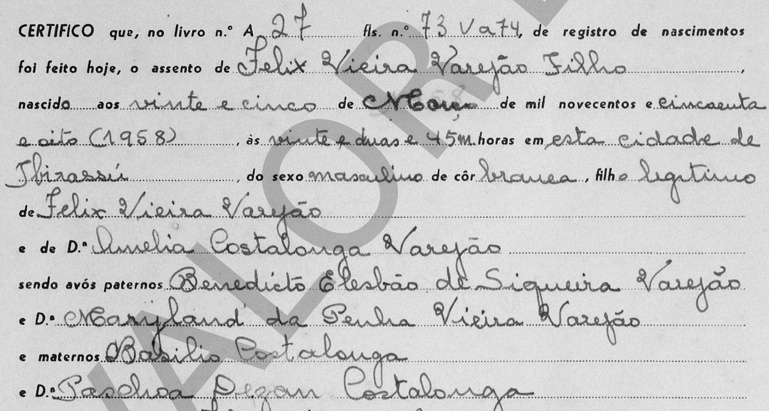 CERTIFICO que, no livro n.º A 27 fls. n.º 73 V a 74, de registro de nascimentos
foi feito hoje, o assento de Felix Vieira Varejão Filho,
nascido aos vinte e cinco de Março de mil novecentos e cincoenta
e oito (1958), às vinte e duas e 45m. horas em esta cidade de
Ibirassú, do sexo masculino de côr branca, filho legitimo
de Felix Vieira Varejão
e de D.ª Amelia Costalonga Varejão
sendo avós paternos Benedicto Elesbão de Siqueira Varejão
e D.ª Maryland da Penha Vieira Varejão
e maternos Basilio Costalonga
e D.ª Paschoa Pezan Costalonga
VALOR